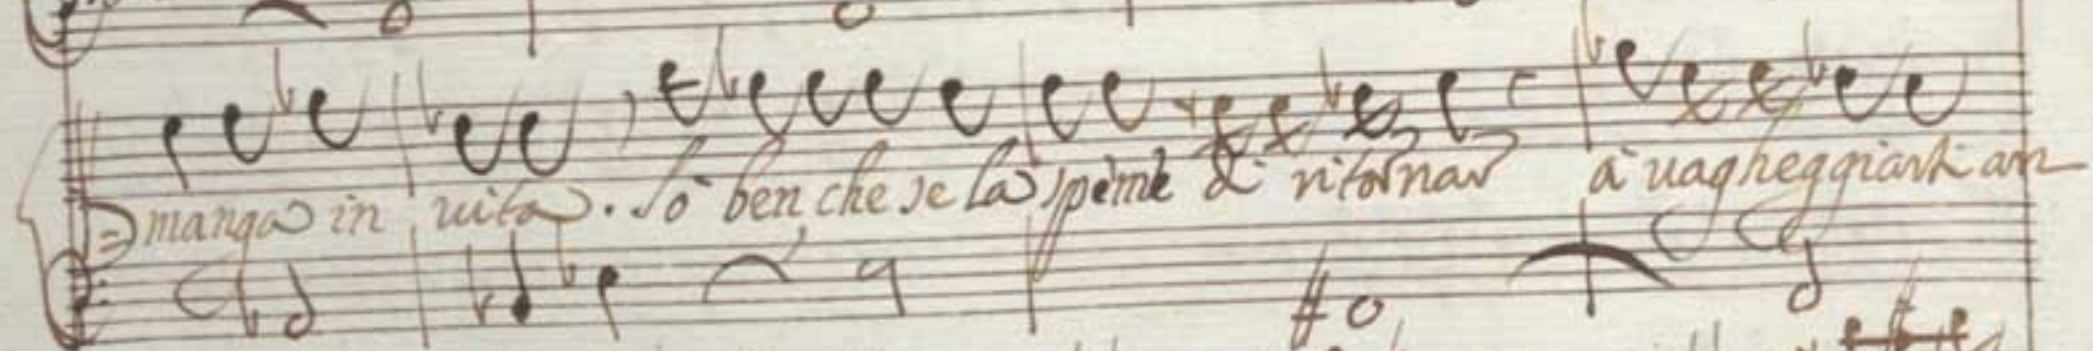 manga in uita. Sò ben che se la speme di ritornar à uagheggiarti an